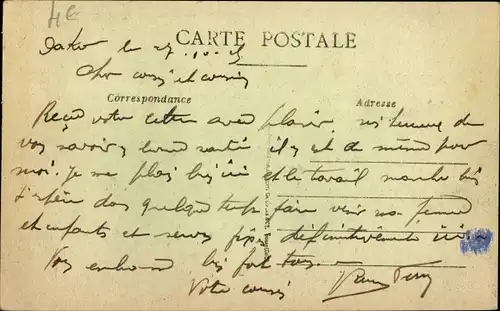 4€
CARTE POSTALE
Dakar le 27.10.
Cher cousin et cousine
Correspondance
Adresse
Reçu votre lettre avec plaisir, de
vous savoir en bonne santé il y et de même pour
moi. Je me plais bien ici et le travail marche bien
J'espère dans quelque temps faire venir ma femme
et enfants et serons fixés définitivement ici
Vous embrasse bien fort tous
Votre cousin